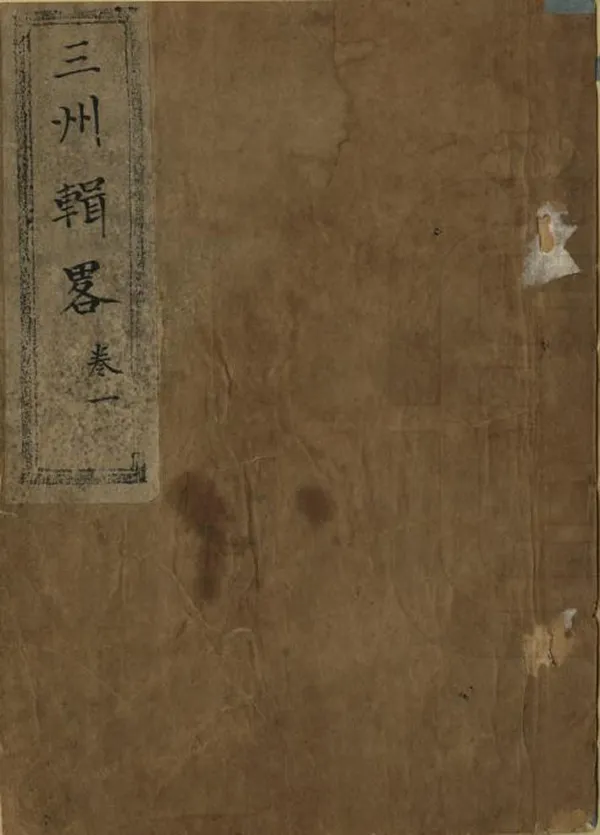 三州輯畧
卷一